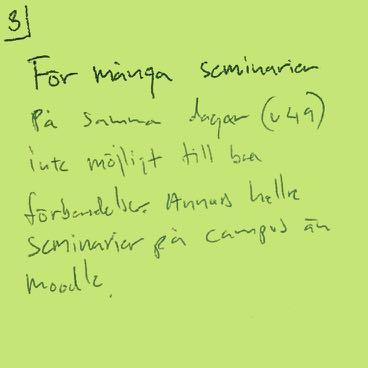 3
För många seminarier
på samma dagar (v49)
inte möjligt till bra
förberedelser. Annars hellre
seminarier på campus än
moodle.